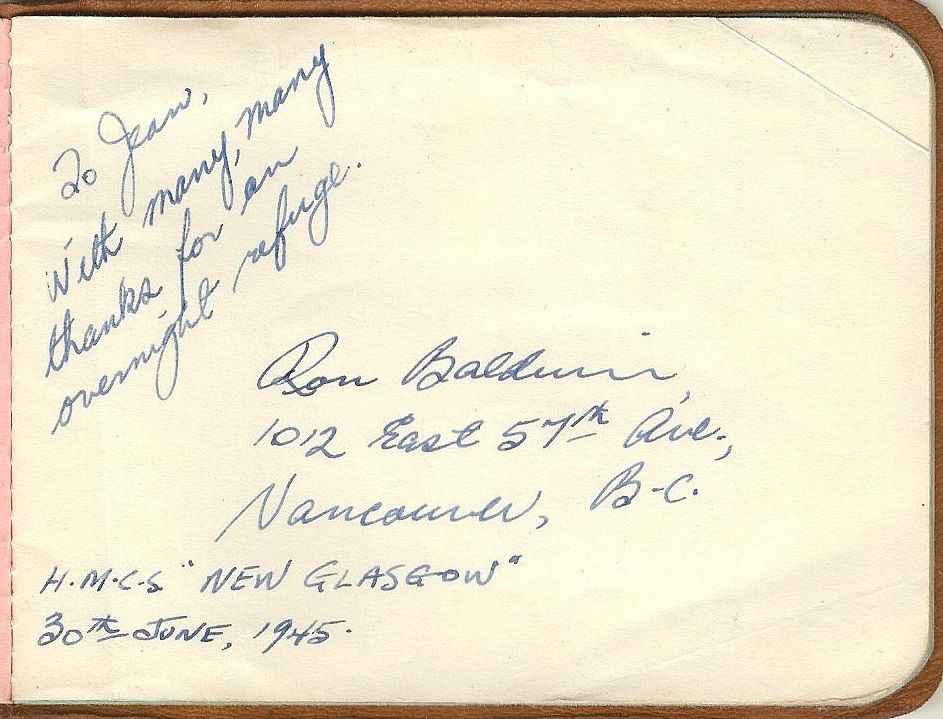 To Jean,
With many, many
thanks for an
overnight refuge.
Ron Baldwin,
1012 East 57th Ave.,
Vancouver, B.C.
H.M.C.S "NEW GLASGOW"
30th JUNE, 1945.